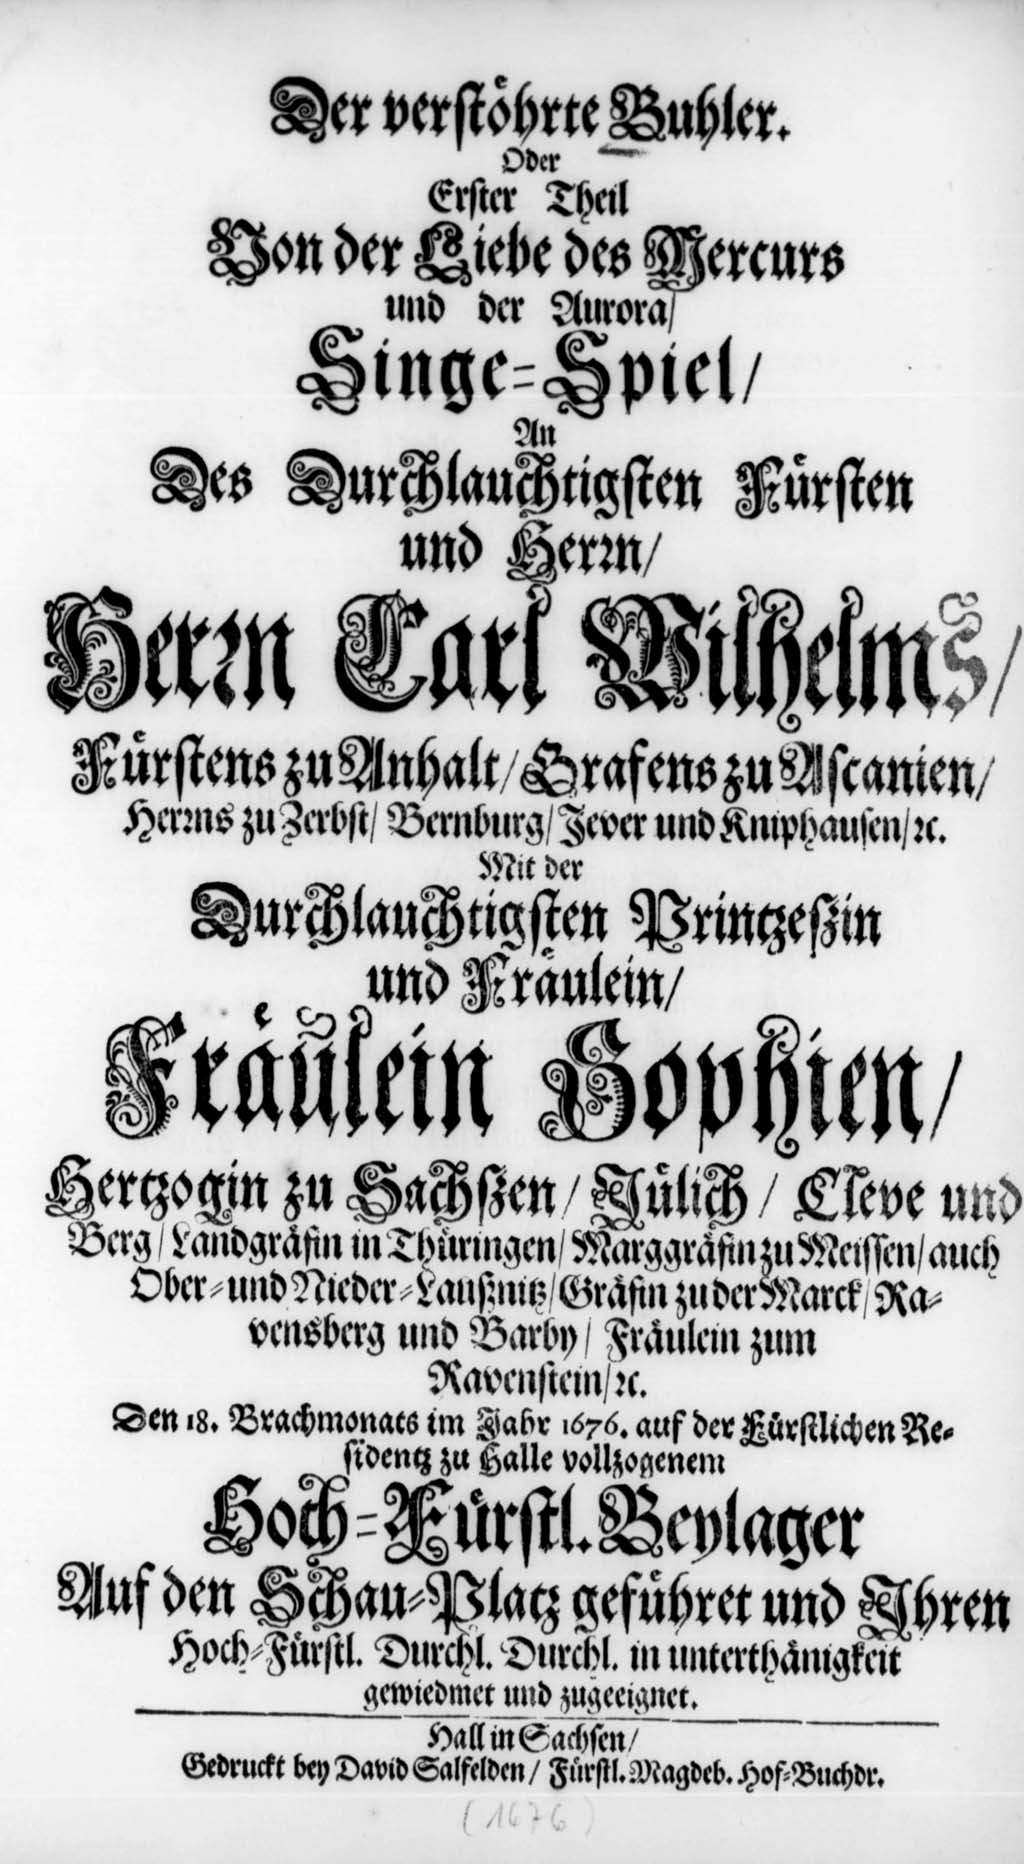 Der verstöhrte Buhler.
Oder
Erster Theil
Von der Liebe des Mercurs
und der Aurora/
Singe-Spiel/
An
Des Durchlauchtigsten Fürsten
und Herrn/
Herrn Carl Wilhelms/
Fürstens zu Anhalt/ Grafens zu Ascanien/
Herrns zu Zerbst/ Bernburg/ Jever und Kniphausen/ ꝛc.
Mit der
Durchlauchtigsten Printzeszin
und Fräulein/
Fräulein Sophien/
Hertzogin zu Sachszen/ Jülich/ Cleve und
Berg/ Landgräfin in Thüringen/ Marggräfin zu Meissen/ auch
Ober- und Nieder-Laußnitz/ Gräfin zu der Marck/ Ra-
vensberg und Barby/ Fräulein zum
Ravenstein/ ꝛc.
Den 18. Brachmonats im Jahr 1676. auf der Fürstlichen Re-
sidentz zu Halle vollzogenem
Hoch-Fürstl. Beylager
Auf den Schau-Platz geführet und Ihren
Hoch-Fürstl. Durchl. Durchl. in unterthänigkeit
gewiedmet und zugeeignet.
Hall in Sachsen/
Gedruckt bey David Salfelden/ Fürstl. Magdeb. Hof-Buchdr.
(1676)